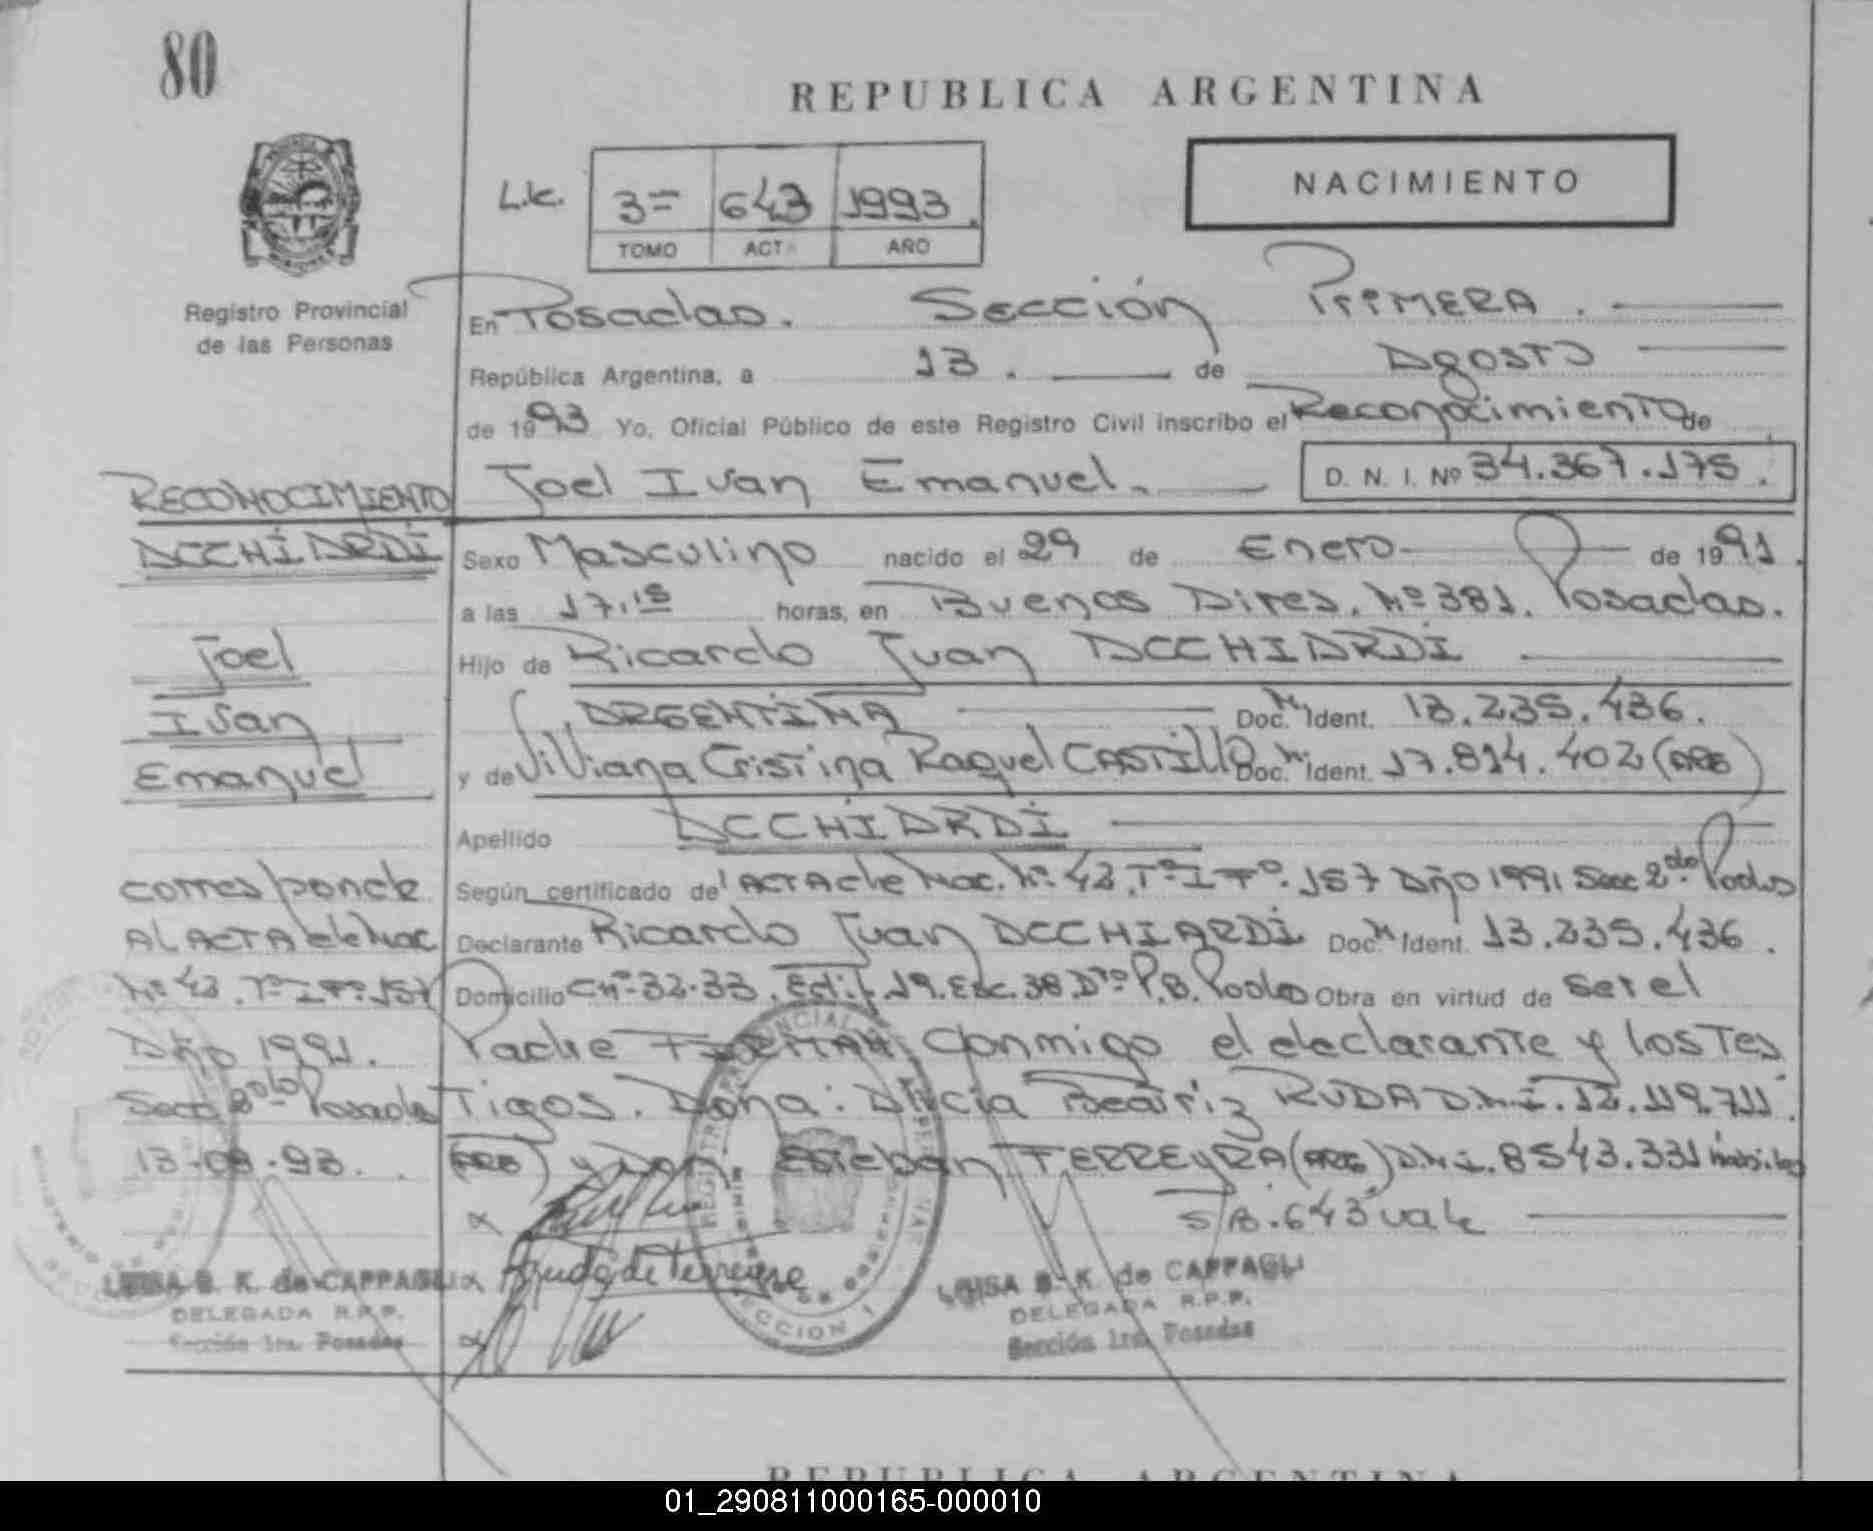 80
REPUBLICA ARGENTINA
NACIMIENTO
Registro Provincial
de las Personas
3= 643 1993
TOMO ACTA AÑO
En Posadas. Sección Primera.
República Argentina, a 13. de Agosto
de 1993 Yo, Oficial Público de este Registro Civil inscribo el Reconocimiento de
Joel Ivan Emanuel. D. N. I. Nº 34.367.175.
RECONOCIMIENTO
ACCHIARDI
Joel
Ivan
Emanuel
corresponde
Al ACTA de Nac
Nº 42. Tº I Fº. 157
Año 1991.
Secc 2da Posadas
13-08-93.
Sexo Masculino nacido el 29 de Enero de 1991.
a las 17,15 horas, en Buenos Aires. Nº 381. Posadas.
Hijo de Ricardo Juan ACCHIARDI
ARGENTINA Doc. M. Ident. 13.235.436.
y de Viviana Cristina Raquel CASTILLO Doc. M. Ident. 17.814.402 (ARG)
Apellido ACCHIARDI
Según certificado de ACTA de Nac. Nº 42. Tº I Fº. 157 Año 1991 Secc 2da. Pdas
Declarante Ricardo Juan ACCHIARDI Doc. M. Ident. 13.235.436.
Domicilio Ch. 32-33. Edif. 19. Esc. 38. Dto P.B. Pdas Obra en virtud de ser el
Padre FIRMAN, Conmigo el declarante y los Tes
Tigos. Doña: Alicia Beatriz RUDA D.N.I. 12.119.711.
(ARG) y Don Esteban FERREYRA (ARG) D.N.I. 8543.331 hábiles
S/B. 643 vale
LUISA B. K. de CAPPAGLI
DELEGADA R.P.P.
Sección 1ra. Posadas
LUISA B. K. de CAPPAGLI
DELEGADA R.P.P.
Sección 1ra. Posadas
REGISTRO PROVINCIAL
SECCION 1
REPUBLICA ARGENTINA
01_290811000165-000010